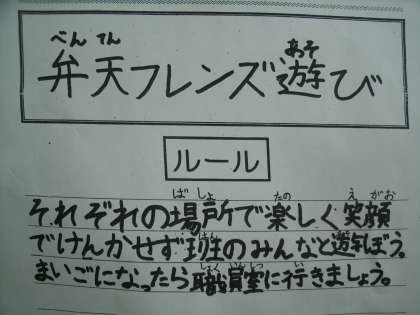 べんてん あそ
弁天フレンズ遊び
ルール
ばしょ たの えがお
それぞれの場所で楽しく笑顔
でけんかせず班のみんなと遊ぼう。
しょくいんしつ い
まいごになったら職員室に行きましょう。